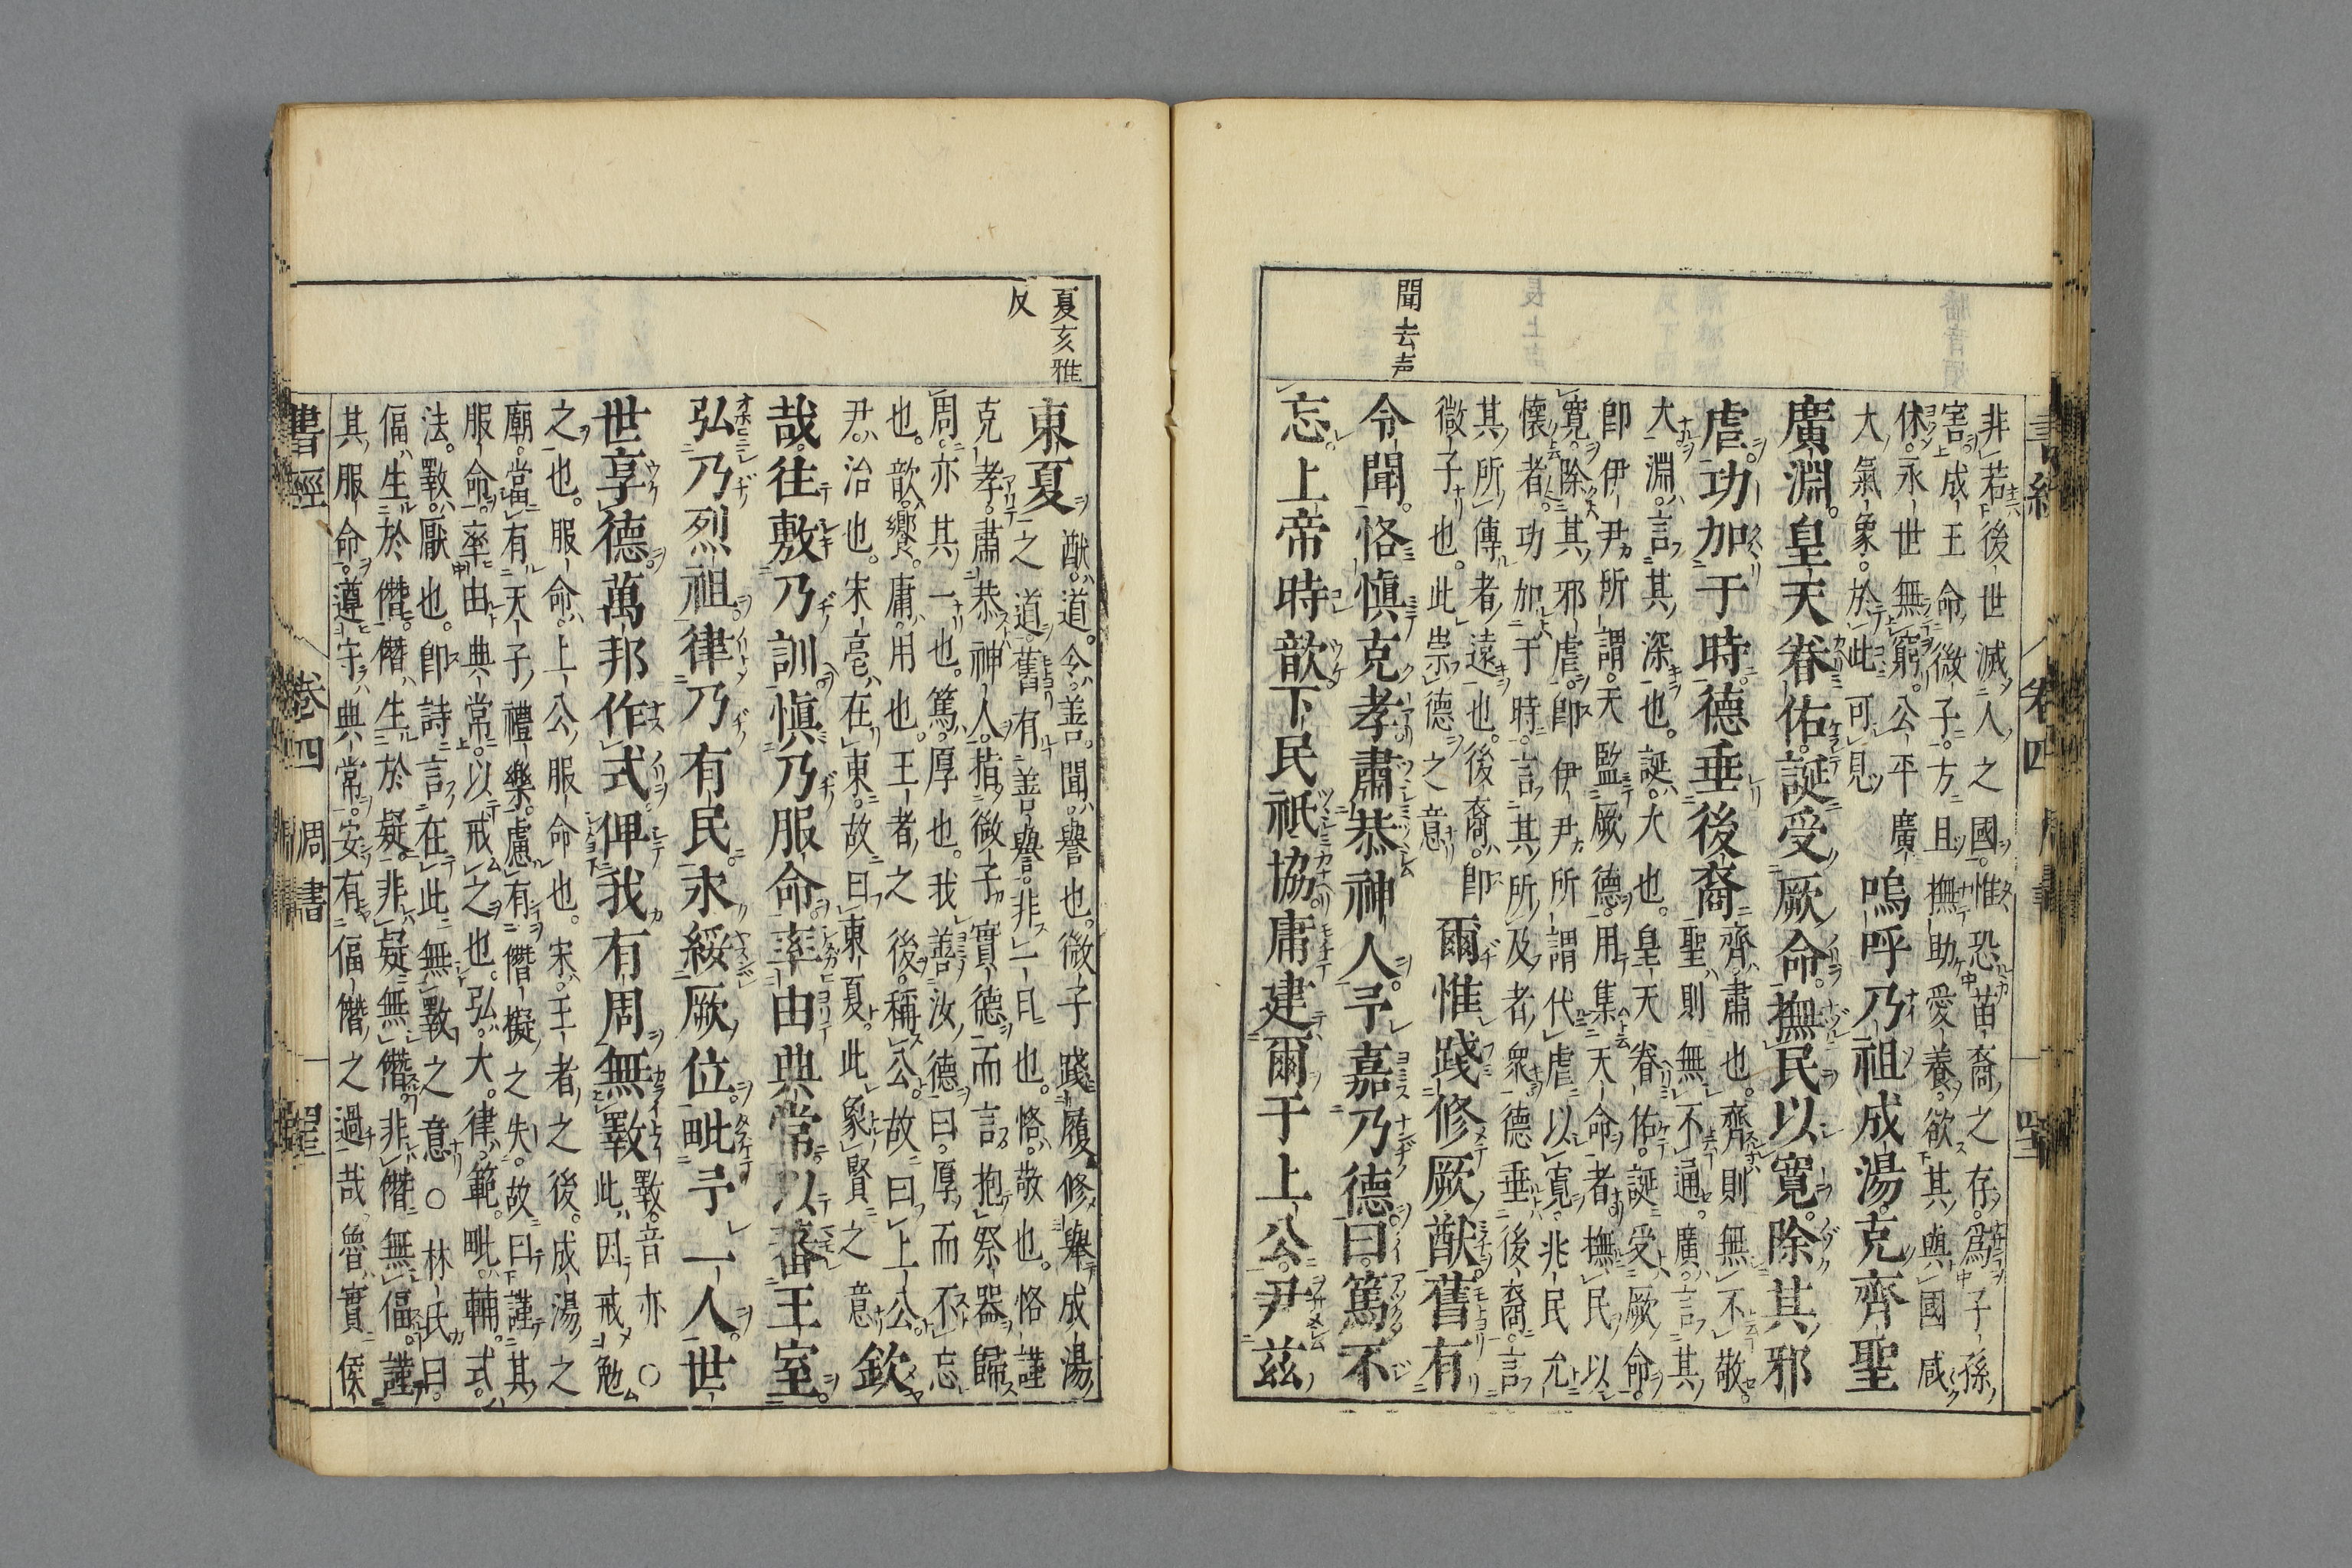 聞去声
非若後世滅人之國。惟恐苗裔之存。爲子孫
害。成王命微子。方且撫助愛養。欲其與國咸
休。永世無窮。公平廣
大氣象。於此可見
嗚呼乃祖成湯。克齊聖
廣淵。皇天眷佑。誕受厥命。撫民以寬。除其邪
虐。功加于時。德垂後裔
齊。肅也。齊則無不敬。
聖則無不通。廣。言其
大。淵。言其深也。誕。大也。皇天眷佑。誕受厥命。
即伊尹所謂。天監厥德。用集天命者。撫民以
寬。除其邪虐。即伊尹所謂代虐以寬。兆民允
懷者。功加于時。言其所及者衆。德垂後裔。言
其所傳者遠也。後裔。即
微子也。此崇德之意
爾惟踐修厥猷。舊有
令聞。恪愼克孝。肅恭神人。予嘉乃德。曰篤不
忘。上帝時歆。下民祇協。庸建爾于上公。尹茲
夏亥雅
反
東夏
猷。道。令。善。聞。譽也。微子踐履修舉成湯
之道。舊有善譽。非一日也。恪。敬也。恪謹
克孝。肅恭神人。指微子實德而言。抱祭器歸
周。亦其一也。篤。厚也。我善汝德。曰。厚而不忘
也。歆。饗。庸。用也。王者之後。稱公。故曰上公。
尹。治也。宋亳在東。故曰東夏。此象賢之意
欽
哉。往敷乃訓。愼乃服命。率由典常。以蕃王室。
弘乃烈祖。律乃有民。永綏厥位。毗予一人。世
世享德。萬邦作式。俾我有周無斁
斁。音亦○
此因戒勉
之也。服命。上公服命也。宋。王者之後。成湯之
廟。當有天子禮樂。慮有僭擬之失。故曰。謹其
服命。率由典常。以戒之也。弘。大。律。範。毗。輔。式。
法。斁。厭也。即詩言在此無斁之意○林氏曰。
偪生於僭。僭生於疑。非疑無僭。非僭無偪。謹
其服命。遵守典常。安有偪僭之過哉。魯實侯
書經 卷四 周書